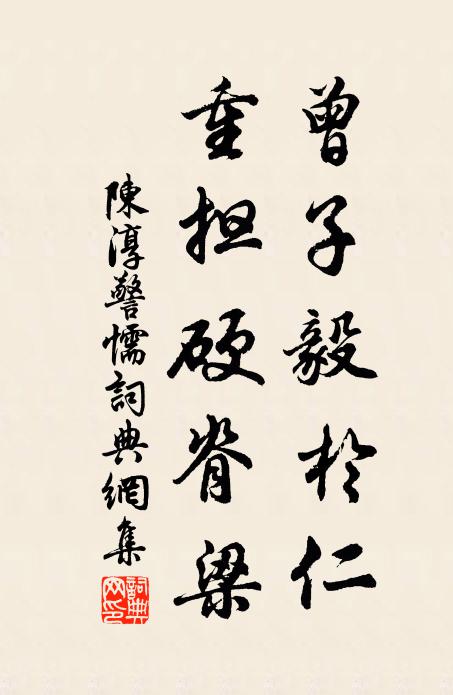 曾子毅於仁
重担硬脊梁
陳淳警懦詞典網集
詞典
网印